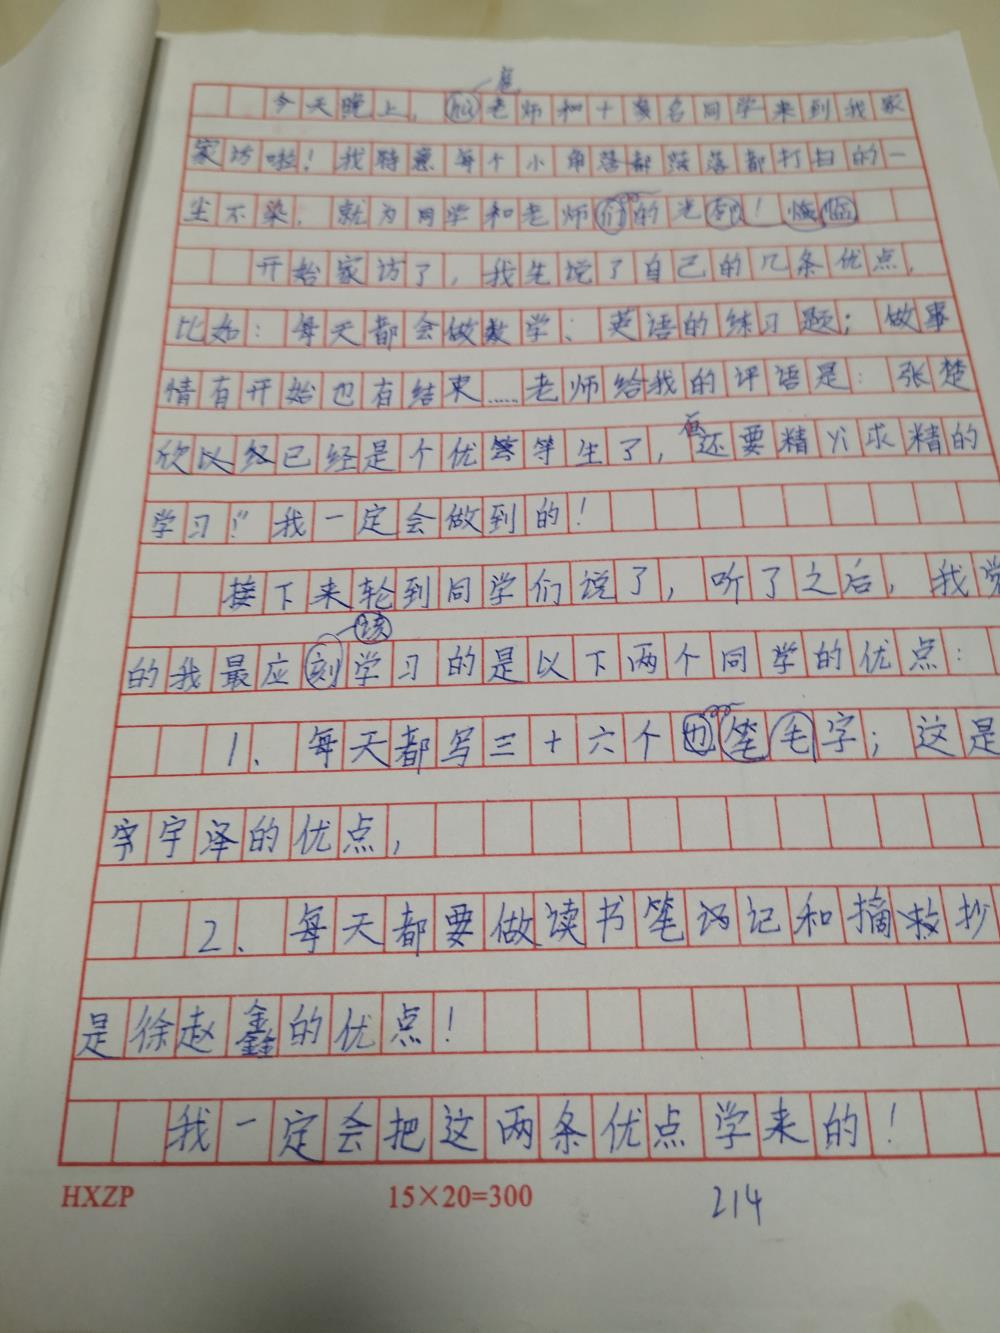 今天晚上，包老师和十多名同学来到我家
家访啦！我特意每个小角落都落落都打扫的一
尘不染，就为同学和老师们的光临！
开始家访了，我先说了自己的几条优点，
比如：每天都会做数学、英语的练习题；做事
情有开始也有结束……老师给我的评语是：张楚
欣以经已经是个优等等生了，还要精yì求精的
学习！”我一定会做到的！
接下来轮到同学们说了，听了之后，我觉
的我最应该学习的是以下两个同学的优点：
1、每天都写三十六个笔毛字；这是
宇泽的优点，
2、每天都要做读书笔记和摘抄
是徐赵鑫的优点！
我一定会把这两条优点学来的！
HXZP 15×20=300 214